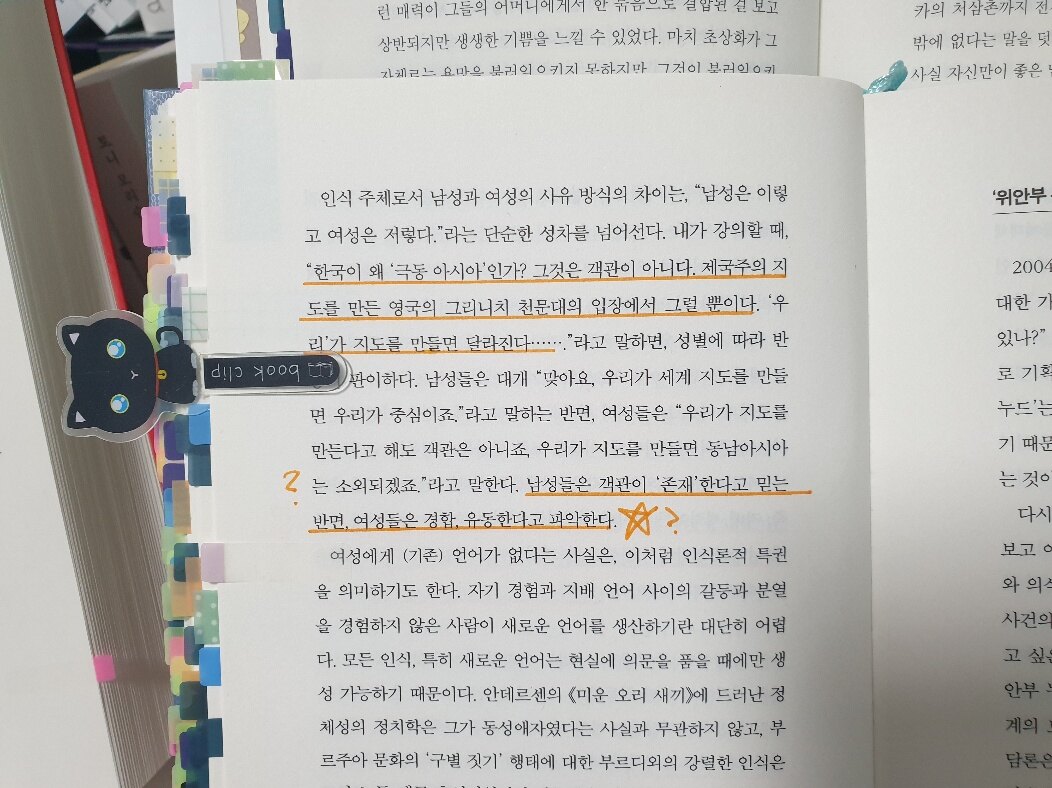 린 매력이 그들의 어머니에게서 한 묶음으로 결합된 걸 보고
상반되지만 생생한 기쁨을 느낄 수 있었다. 마치 초상화가 그
자체로는 욕망을 불러일으키지 못하지만, 그것이 불러일으키
카의 처삼촌까지 전
밖에 없다는 말을 덧
사실 자신만이 좋은
인식 주체로서 남성과 여성의 사유 방식의 차이는, “남성은 이렇
고 여성은 저렇다.”라는 단순한 성차를 넘어선다. 내가 강의할 때,
“한국이 왜 ‘극동 아시아’인가? 그것은 객관이 아니다. 제국주의 지
도를 만든 영국의 그리니치 천문대의 입장에서 그럴 뿐이다. ‘우
리’가 지도를 만들면 달라진다…….”라고 말하면, 성별에 따라 반
관이하다. 남성들은 대개 “맞아요, 우리가 세계 지도를 만들
면 우리가 중심이죠.”라고 말하는 반면, 여성들은 “우리가 지도를
만든다고 해도 객관은 아니죠, 우리가 지도를 만들면 동남아시아
는 소외되겠죠.”라고 말한다. 남성들은 객관이 ‘존재’한다고 믿는
반면, 여성들은 경합, 유동한다고 파악한다. ?
?
여성에게 (기존) 언어가 없다는 사실은, 이처럼 인식론적 특권
을 의미하기도 한다. 자기 경험과 지배 언어 사이의 갈등과 분열
을 경험하지 않은 사람이 새로운 언어를 생산하기란 대단히 어렵
다. 모든 인식, 특히 새로운 언어는 현실에 의문을 품을 때에만 생
성 가능하기 때문이다. 안데르센의 《미운 오리 새끼》에 드러난 정
체성의 정치학은 그가 동성애자였다는 사실과 무관하지 않고, 부
르주아 문화의 ‘구별 짓기’ 행태에 대한 부르디외의 강렬한 인식은
book clip
‘위안부
2004
대한 기
있나?”
로 기획
누드’는
기 때문
는 것이
다시
보고 이
와 의식
사건의
고 싶은
안부 누
계의 보
담론은